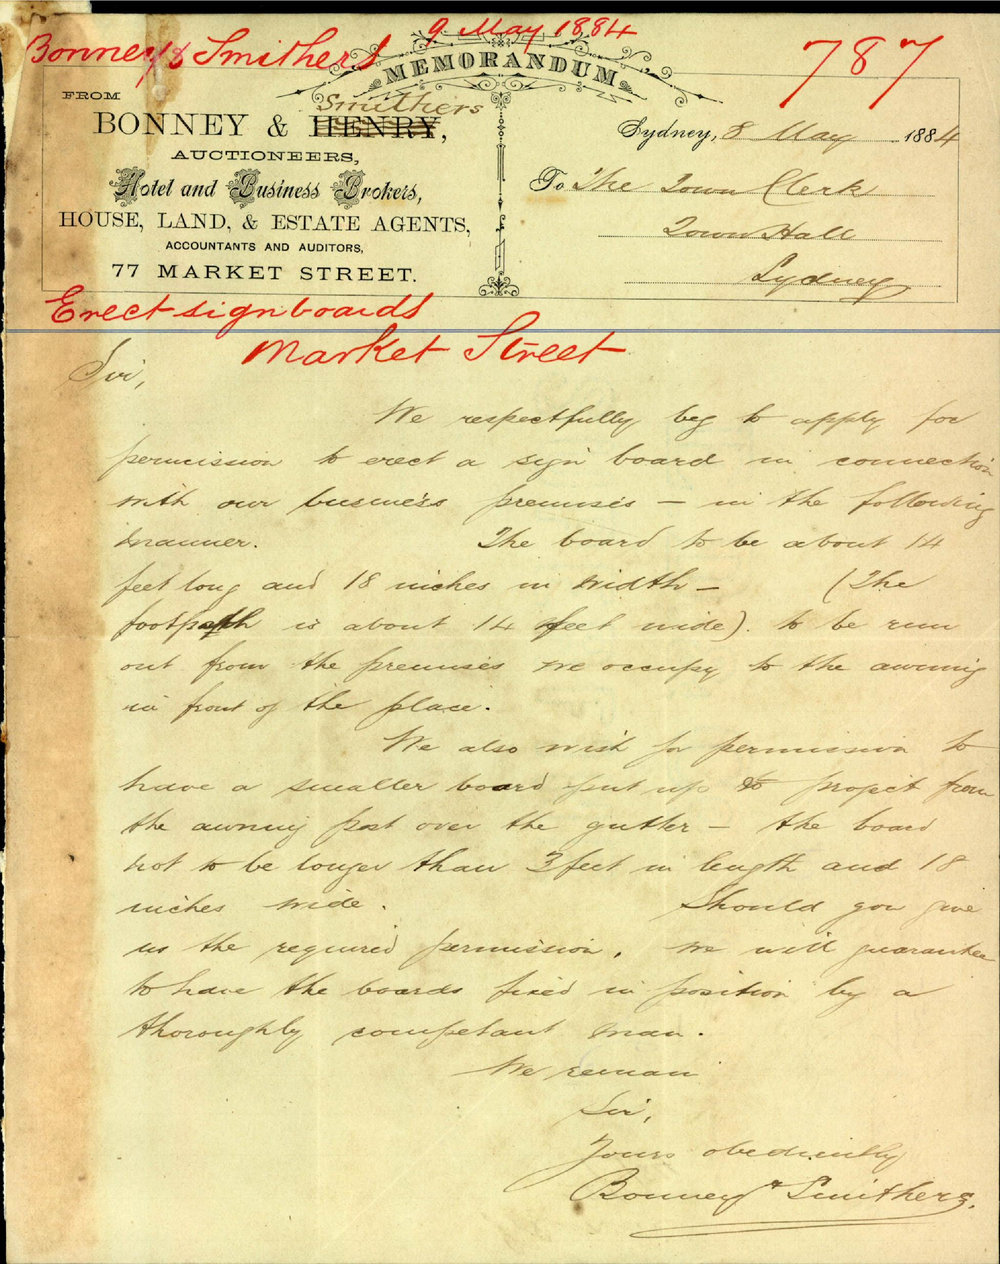 Bonney & Smithers 9 May 1884
787
MEMORANDUM
FROM
Smithers
BONNEY & HENRY,
AUCTIONEERS,
Hotel and Business Brokers,
HOUSE, LAND, & ESTATE AGENTS,
ACCOUNTANTS AND AUDITORS,
77 MARKET STREET.
Sydney, 8 May 1884
To The Town Clerk
Town Hall
Sydney
Erect signboards
Market Street
Sir,
We respectfully beg to apply for
permission to erect a sign board in connection
with our business premises – in the following
manner. The board to be about 14
feet long and 18 inches in width – (The
footpath is about 14 feet wide). to be run
out from the premises we occupy to the awning
in front of the place.
We also wish for permission to
have a smaller board put up to project from
the awning post over the gutter – the board
not to be longer than 3 feet in length and 18
inches wide. Should you give
us the required permission, we will guarantee
to have the boards fixed in position by a
thoroughly competant man.
We remain
Sir,
Yours obediently
Bonney & Smithers.